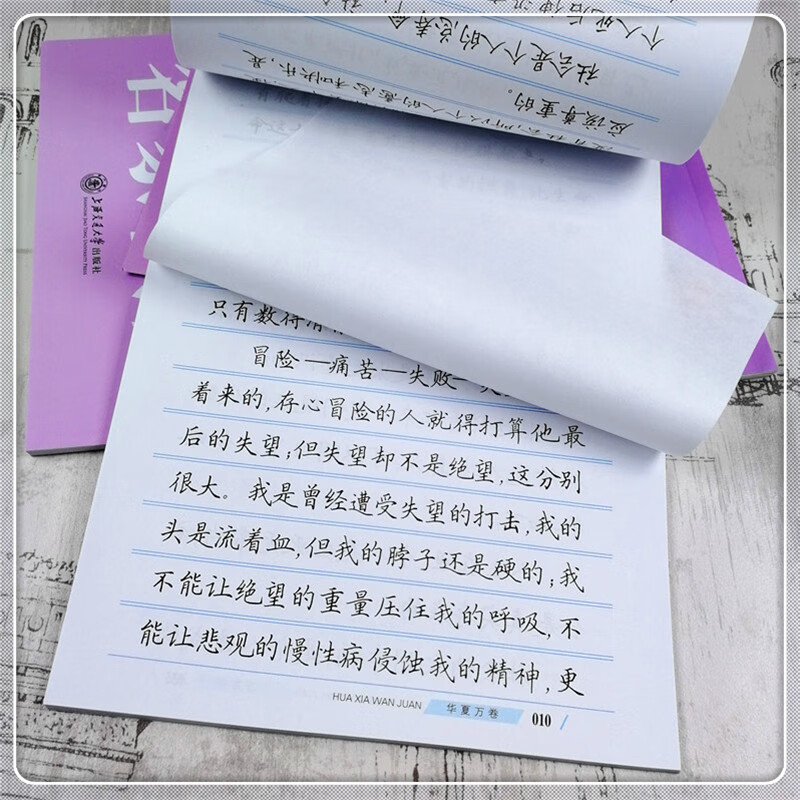 所以个人的意志和快乐,是
应该尊重的。
社会是个人的总寿命
个人死后便没
上海交通大学出版社
SHANGHAI JIAO TONG UNIVERSITY PRESS
只有数得清
冒险—痛苦—失败—失
着来的,存心冒险的人就得打算他最
后的失望;但失望却不是绝望,这分别
很大。我是曾经遭受失望的打击,我的
头是流着血,但我的脖子还是硬的;我
不能让绝望的重量压住我的呼吸,不
能让悲观的慢性病侵蚀我的精神,更
HUA XIA WAN JUAN 华夏万卷 010